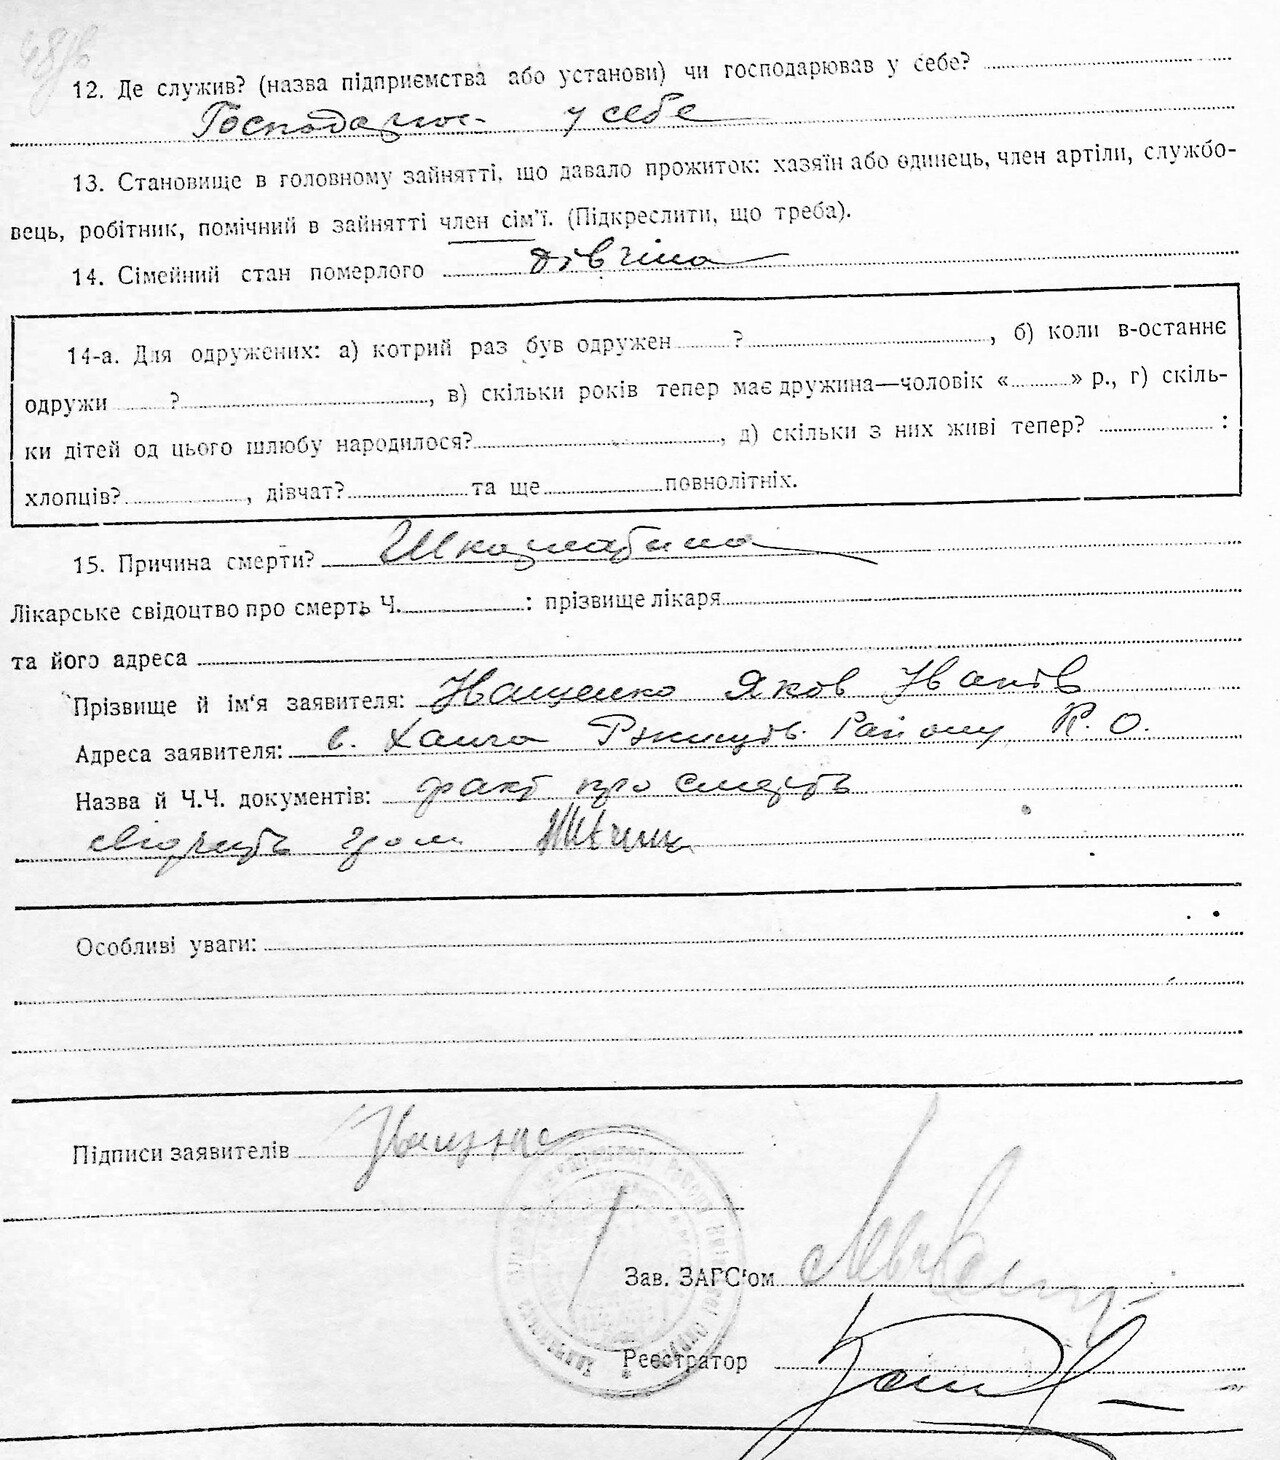 12. Де служив? (назва підприємства або установи) чи господарював у себе?
Господарює у себе
13. Становище в головному зайнятті, що давало прожиток: хазяїн або одинець, член артіли, службо-
вець, робітник, помічний в зайнятті член сім'ї. (Підкреслити, що треба).
14. Сімейний стан померлого дівчина
14-а. Для одружених: а) котрий раз був одружен ? , б) коли в-останнє
одружи ? , в) скільки років тепер має дружина—чоловік « » р., г) скіль-
ки дітей од цього шлюбу народилося? , д) скільки з них живі тепер? :
хлопців? , дівчат? та ще повнолітніх.
15. Причина смерти? Шкарлатина
Лікарське свідоцтво про смерть Ч. : прізвище лікаря
та його адреса
Прізвище й ім'я заявителя: Іващенко Яков Іванів
Адреса заявителя: с. Ржищів. Району К. О.
Назва й Ч.Ч. документів: факт про смерть
свідчить гром.
Особливі уваги:
Підписи заявителів
Зав. ЗАГС'ом
Реєстратор